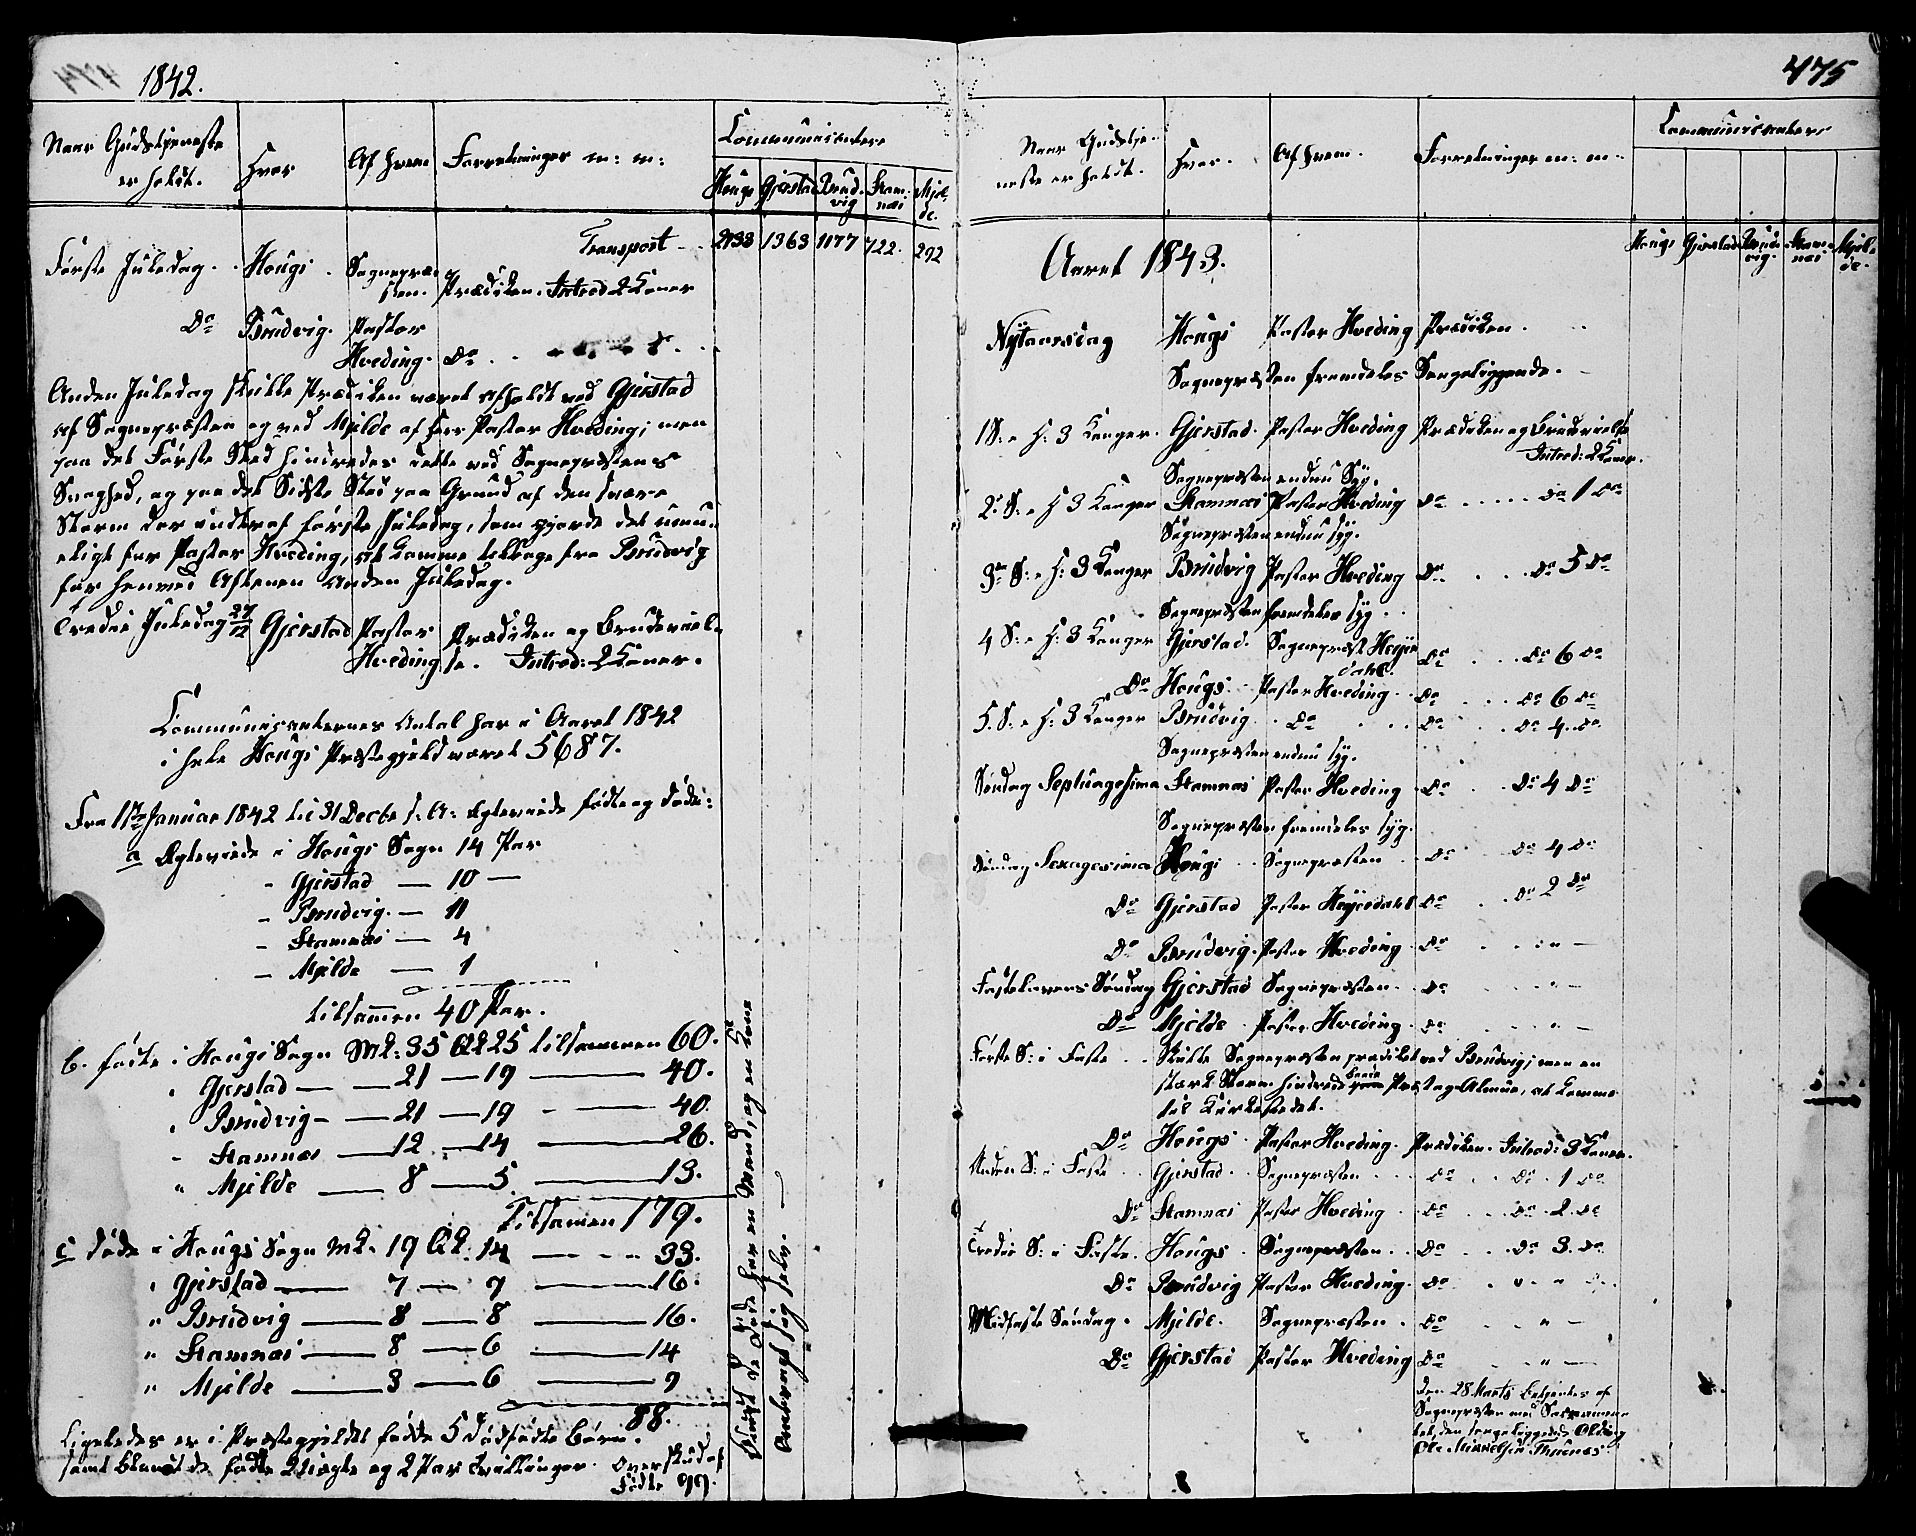 1842.
Naar Gudstjeneste er holdt. Hvor Af hvem Forretninger m: m: Communicantere
Hougs Gjerstad Brudvig Stamnæs Mjelde.
Transport 2133 1363 1177 722. 292
Første Juledag. Hougs. Sognepræsten. Prædiken. Introd 2 Koner
Do Brudvig. Pastor
Hveding. do
Anden Juledag skulde Prædiken været afholdt ved Gjerstad
af Sognepræsten og ved Mjelde af Herr Pastor Hveding; men
paa det Første Sted hindredes dette ved Sognepræstens
Svaghed, og paa det Sidste Sted paa Grund af den svære
Storm der indtraf første Juledag, som gjorde det umu-
eligt for Pastor Hveding, at komme tilbage fra Brudvig
før henved Aftenen Anden Juledag.
Tredie Juledag 27/12 Gjerstad Pastor Prædiken og Brudeviel-
Hveding se. Introd: 2 Koner.
Communicanternes Antal har i Aaret 1842
i hele Hougs Præstegjeld været 5687.
Fra 1ste Januar 1842 til 31 Decbr s: A: Ægteviede fødte og døde:
a Ægteviede i Hougs Sogn 14 Par
- Gjerstad — 10 —
- Brudvig. — 11
- Stamnæs — 4
- Mjelde — 1
tilsammen 40 Par.
b. fødte i Hougs Sogn Mk: 35 Qk 25 tilsammen 60.
" Gjerstad — 21 — 19 — 40.
" Brudvig — 21 — 19 — 40.
" Stamnæs — 12 — 14 — 26.
" Mjelde — 8 — 5 — 13.
Tilsamen 179.
c døde i Hougs Sogn Mk. 19 Qk. 14 — 33.
" Gjerstad — 7 — 9 — 16.
" Brudvig — 8 — 8 — 16.
" Stamnæs — 8 — 6 — 14
" Mjelde — 3 — 6 — 9
88.
Ligeledes er i Præstegjeldet fødde 5 dødfødte Børn.
samt blandt de fødte 2 uægte og 2 Par Tvillinger. Overskud af
Fødte 99.
Blandt de Døde har en Mand, og en Kone
ombragt sig selv.
475
Naar Gudstje-
neste er holdt. Hvor. Af hvem. Forretninger m: m: Communicantere
Hougs Gjerstad Brudvig. Stamnæs Mjelde.
Aaret 1843.
Nytaarsdag Hougs Pastor Hveding Prædiken.
Sognepræsten fremdeles Sengeliggende.
1 S: e H: 3 Konger. Gjerstad. Pastor Hveding Prædiken og Brudevielse
Introd: 2 Koner.
Sognepræsten endnu Syg.
2. S: e H 3 Konger Stamnæs Pastor Hveding do do 1 do
Sognepræsten endnu syg.
3die S: e H: 3 Konger Brudvig Pastor Hveding do do 5 do
Sognepræsten fremdeles syg.
4 S: e H: 3 Konger Gjerstad. Sognepræst Heyerdahl. do do 6 do
Do Hougs. Pastor Hveding. do do 6 do
5. S: e H: 3 Konger Brudvig. do do do 4 do
Sognepræsten endnu syg.
Søndag Septuagesima Stamnæs Pastor Hveding do do 4 do
Sognepræsten fremdeles syg.
Søndag Sexagesima Hougs Sognepræsten do do 4 do
Do Gjerstad Pastor Heyerdahl do do 2 do
Do Brudvig. Pastor Hveding do " —
Fastelavens Søndag Gjerstad Sognepræsten. do " —
Do Mjelde. Pastor Hveding. do " —
Første S: i Faste. Skulde Sognepræsten prædiket ved Brudvig; men en
stærk Storm hindrede baade Præst og Almue, at komme
til Kirkestedet.
Do Hougs. Pastor Hveding. Prædiken. Introd: 3 Koner.
Anden S: i Faste Gjerstad. Sognepræsten do do 1 do
Do Stamnæs Pastor Hveding do do 2 do
Tredie S: i Faste. Hougs. Sognepræsten. do do 3. do
Do Brudvig Pastor Hveding. do " "
Midfaste Søndag. Mjelde. Sognepræsten. do " —
Do Gjerstad Pastor Hveding do " —
Den 28 Marts betjentes af
Sognepræsten med Sacramen-
tet, den sengeliggende Olding
Ole Mikkelsen